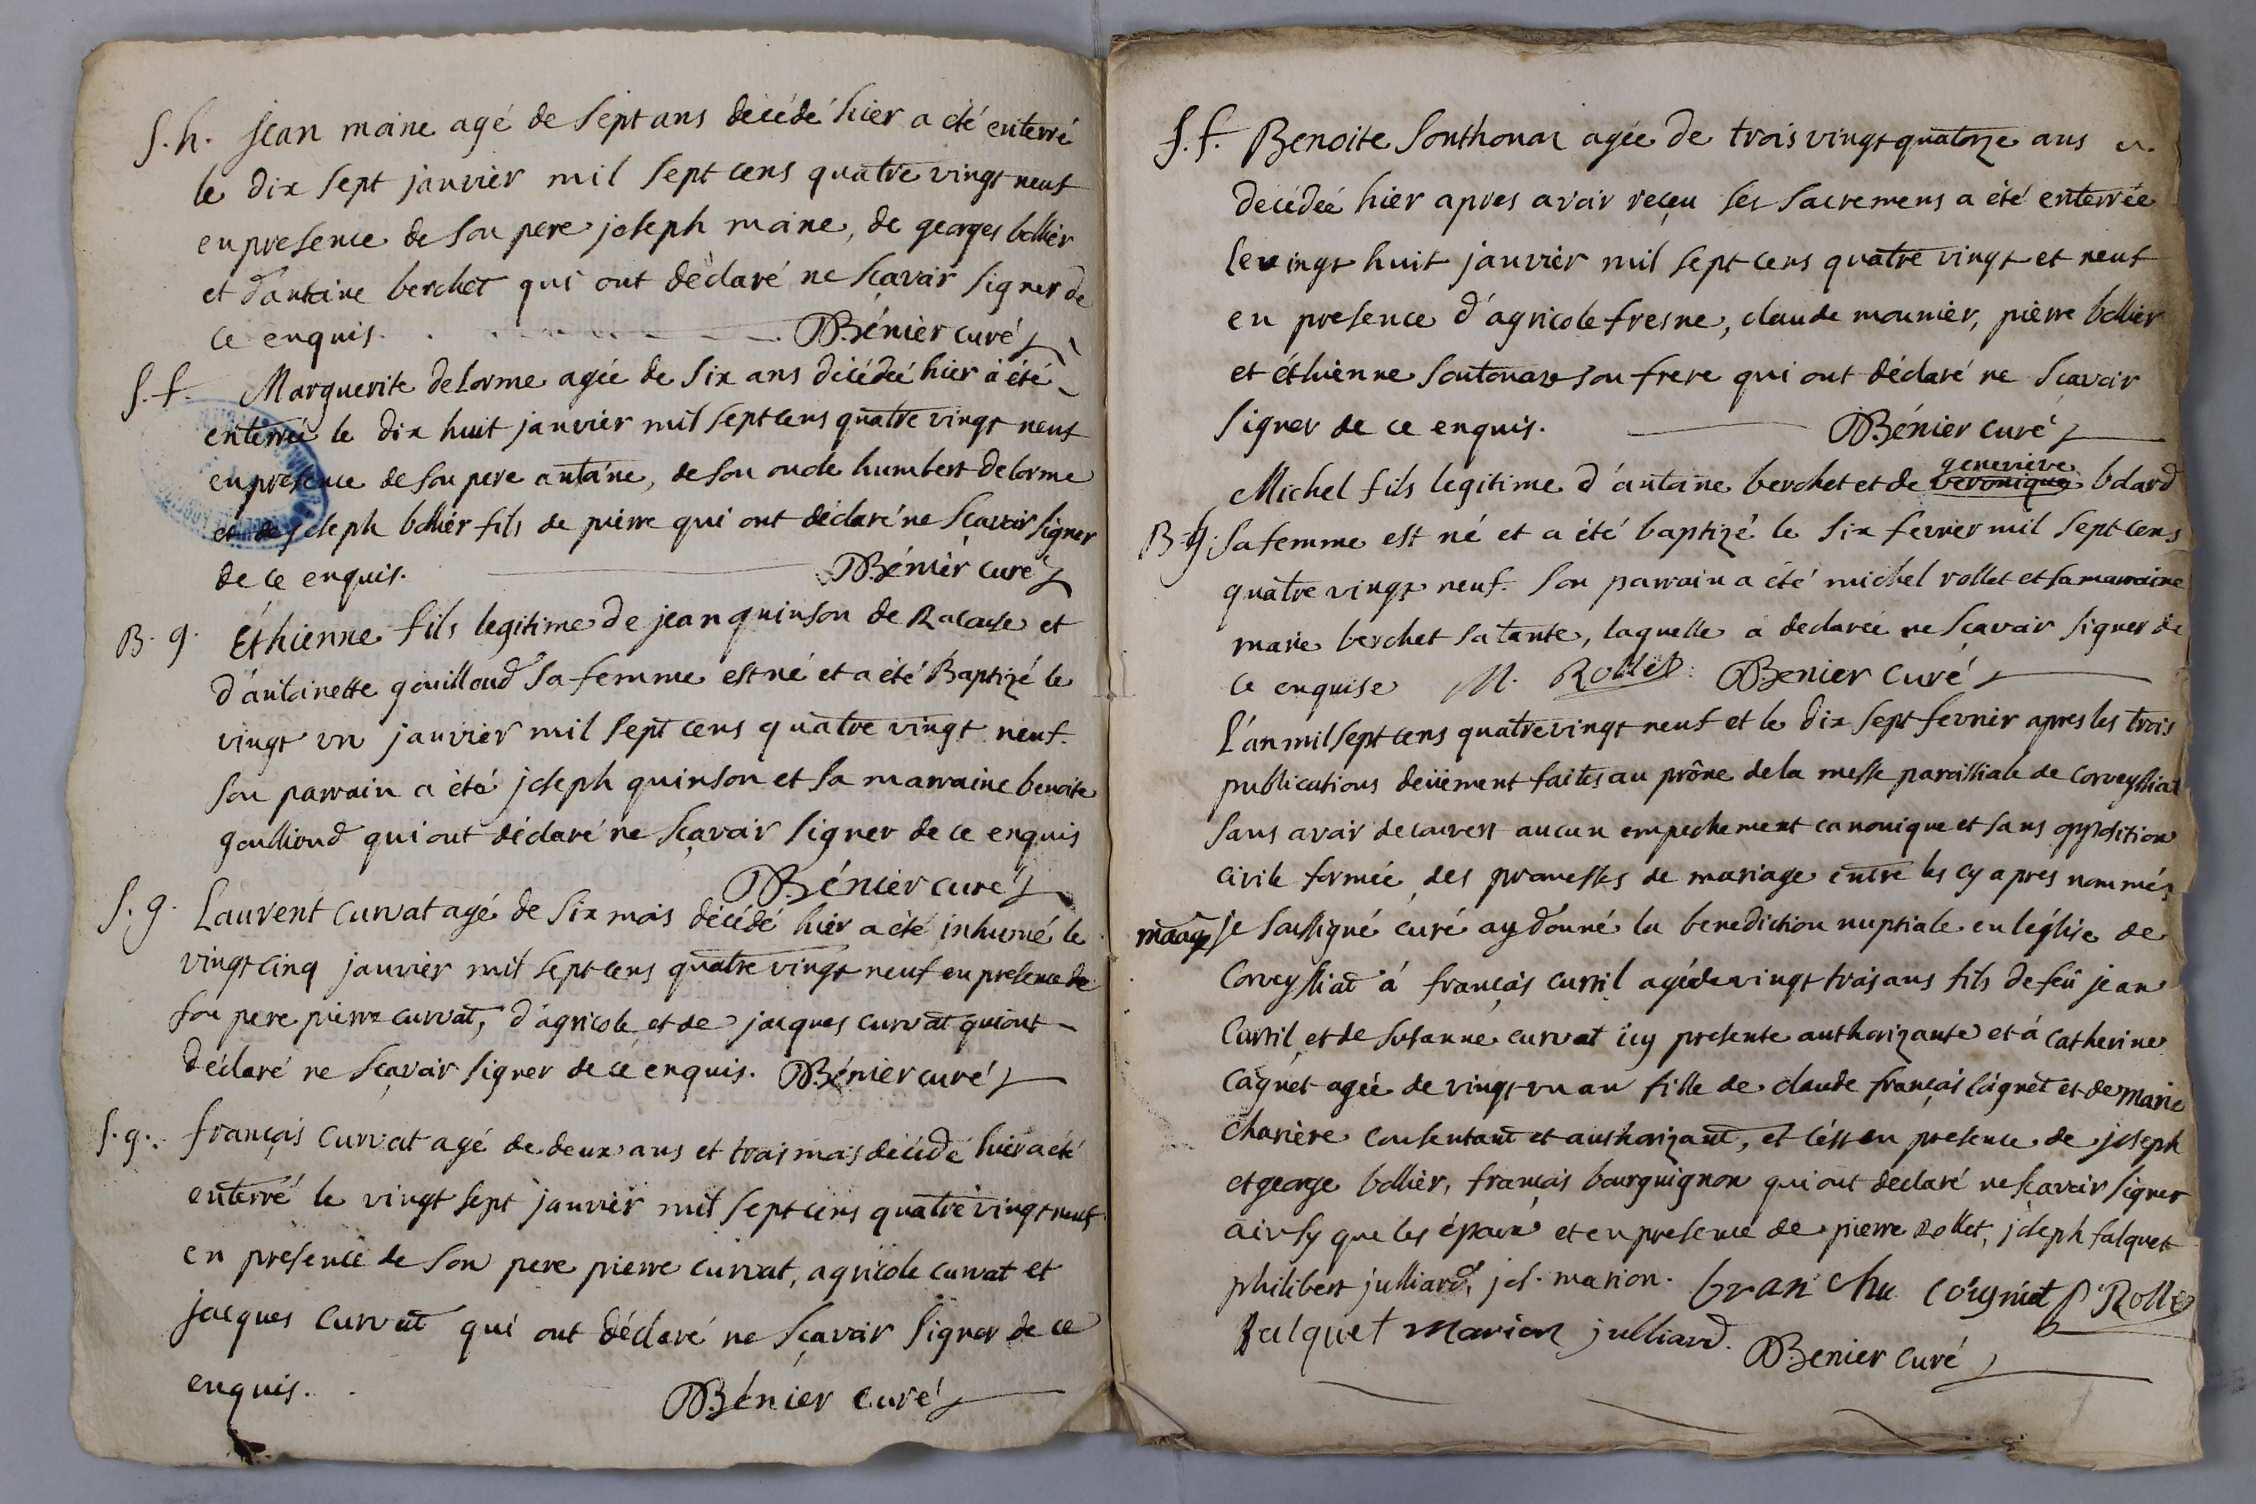 S. h. jean moine agé de sept ans décédé hier a été enterré
le dix sept janvier mil sept cens quatre vingt neuf
en presence de son pere joseph moine, de georges bollier
et d'antoine berchet qui ont déclaré ne sçavoir signer de
ce enquis. Bénier curé
S. f. Marguerite delorme agée de six ans décédée hier à été
enterrée le dix huit janvier mil sept cens quatre vingt neuf
en presence de son pere antoine, de son oncle humbert delorme
et de joseph bollier fils de pierre qui ont déclaré ne sçavoir signer
de ce enquis. Bénier curé
B. g. Éthienne fils legitime de jean quinson de Racouse et
d'antoinette gouilloud sa femme est né et a été Baptizé le
vingt un janvier mil sept cens quatre vingt neuf.
son parrain a été joseph quinson et sa marraine benoite
goullioud qui ont déclaré ne sçavoir signer de ce enquis
Bénier curé
S. g. Laurent curvat agé de six mois décédé hier a été inhumé le
vingt cinq janvier mil sept cens quatre vingt neuf en presence de
son pere pierre curvat, d'agricole et de jacques curvat qui ont
déclaré ne sçavoir signer de ce enquis. Bénier curé
S. g. françois curvat agé de deux ans et trois mois décédé hier a été
enterré le vingt sept janvier mil sept cens quatre vingt neuf
en présence de son pere pierre curvat, agricole curvat et
jacques curvat qui ont déclaré ne sçavoir signer de ce
enquis. Bénier curé
S. f. Benoite Sonthonax agée de trois vingt quatorze ans
décédée hier apres avoir reçeu ses sacremens a été enterrée
le vingt huit janvier mil sept cens quatre vingt et neuf
en presence d'agricole fresne, claude mounier, pierre bollier
et éthienne soutonax son frere qui ont déclaré ne sçavoir
signer de ce enquis. Bénier curé
genevieve
Michel fils legitime d'antoine berchet et de veronique bolard
B. g. sa femme est né et a été baptizé le six fevrier mil sept cens
quatre vingt neuf. son parrain a été michel rollet et sa marraine
marie berchet sa tante, laquelle a declarée ne sçavoir signer de
ce enquise M. Rollet Benier curé
L'an mil sept cens quatre vingt neuf et le dix sept fevrier apres les trois
publications deüement faites au prône de la messe paroissiale de corveyssiat
sans avoir decouvert aucun empechement canonique et sans opposition
civile formée des promesses de mariage entre les cy apres nommés
mariage je soussigné curé ay donné la benediction nuptiale en l'église de
Corveyssiat à françois curril agé de vingt trois ans fils de feü jean
Curril et de susanne curvat icy presente authorizante et à catherine
cagnet agée de vingt un an fille de claude françois cognet et de marie
charière consentant et authorizant, et c'est en presence de joseph
et george bollier, françois bourguignon qui ont declaré ne sçavoir signer
ainsy que les époux et en presence de pierre rollet, joseph falquet
philibert julliard, jos. marion. Coignet P Rollet
falquet marion julliard. Benier curé